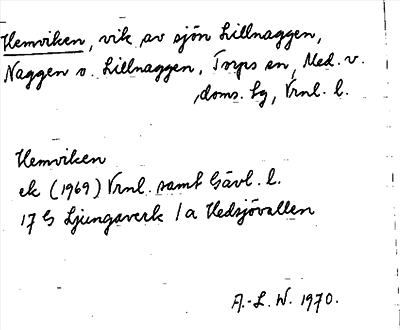 Hemviken, vik av sjön Lillnaggen,
Naggen o. Lillnaggen, Torps sn, Med. v.
doms. tg, Vrnl. l.
Hemviken
ek (1969) Vrnl. samt Gävl. l.
17 G Ljungaverk / a Hedsjövallen
A.-L. W. 1970.